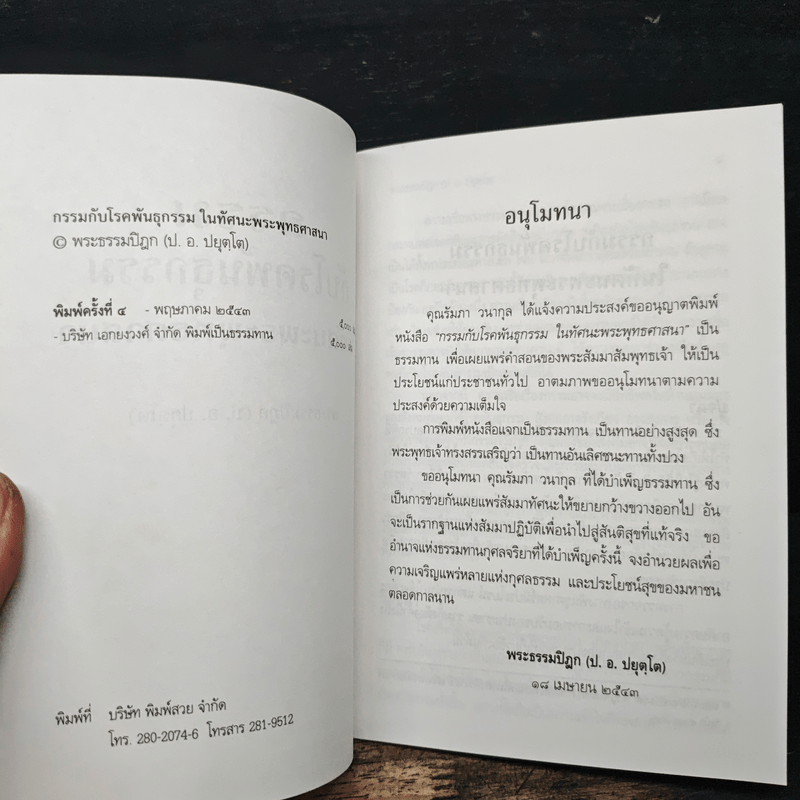 กรรมกับโรคพันธุกรรม ในทัศนะพระพุทธศาสนา
© พระธรรมปิฎก (ป. อ. ปยุตฺโต)
พิมพ์ครั้งที่ ๔ - พฤษภาคม ๒๕๔๓ ๕,๐๐๐
- บริษัท เอกยงวงศ์ จำกัด พิมพ์เป็นธรรมทาน ๕,๐๐๐
พิมพ์ที่ บริษัท พิมพ์สวย จำกัด
โทร. 280-2074-6 โทรสาร 281-9512
อนุโมทนา
คุณรัมภา วนากุล ได้แจ้งความประสงค์ขออนุญาตพิมพ์
หนังสือ "กรรมกับโรคพันธุกรรม ในทัศนะพระพุทธศาสนา" เป็น
ธรรมทาน เพื่อเผยแพร่คำสอนของพระสัมมาสัมพุทธเจ้า ให้เป็น
ประโยชน์แก่ประชาชนทั่วไป อาตมภาพขออนุโมทนาตามความ
ประสงค์ด้วยความเต็มใจ
การพิมพ์หนังสือแจกเป็นธรรมทาน เป็นทานอย่างสูงสุด ซึ่ง
พระพุทธเจ้าทรงสรรเสริญว่า เป็นทานอันเลิศชนะทานทั้งปวง
ขออนุโมทนา คุณรัมภา วนากุล ที่ได้บำเพ็ญธรรมทาน ซึ่ง
เป็นการช่วยกันเผยแพร่สัมมาทัศนะให้ขยายกว้างขวางออกไป อัน
จะเป็นรากฐานแห่งสัมมาปฏิบัติเพื่อนำไปสู่สันติสุขที่แท้จริง ขอ
อำนาจแห่งธรรมทานกุศลจริยาที่ได้บำเพ็ญครั้งนี้ จงอำนวยผลเพื่อ
ความเจริญแพร่หลายแห่งกุศลธรรม และประโยชน์สุขของมหาชน
ตลอดกาลนาน
พระธรรมปิฎก (ป. อ. ปยุตฺโต)
๑๘ เมษายน ๒๕๔๓